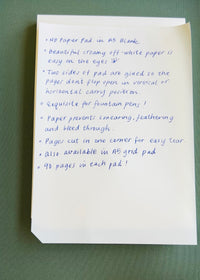 • 40 Paper Pad in A5 Blank
• Beautiful creamy off-white paper is
easy on the eyes
• Two sides of pad are glued so the
pages dont flop open in vertical or
horizontal carry position.
• Exquisite for fountain pens!
• Paper prevents smearing, feathering
and bleed through.
• Pages cut in one corner for easy tear
• Also available in A5 grid pad
• 40 pages in each pad!